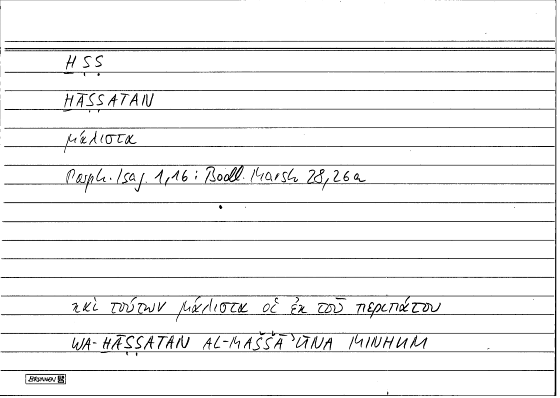 ḪṢṢ
ḪĀṢṢATAN
μάλιστα
Porph. Isag. 1,16: Bodl. Marsh 28,26a
καὶ τούτων μάλιστα οἱ ἐκ τοῦ περιπάτου
WA-ḪĀṢṢATAN AL-MAŠŠĀʾŪNA MINHUM
BRUNNEN